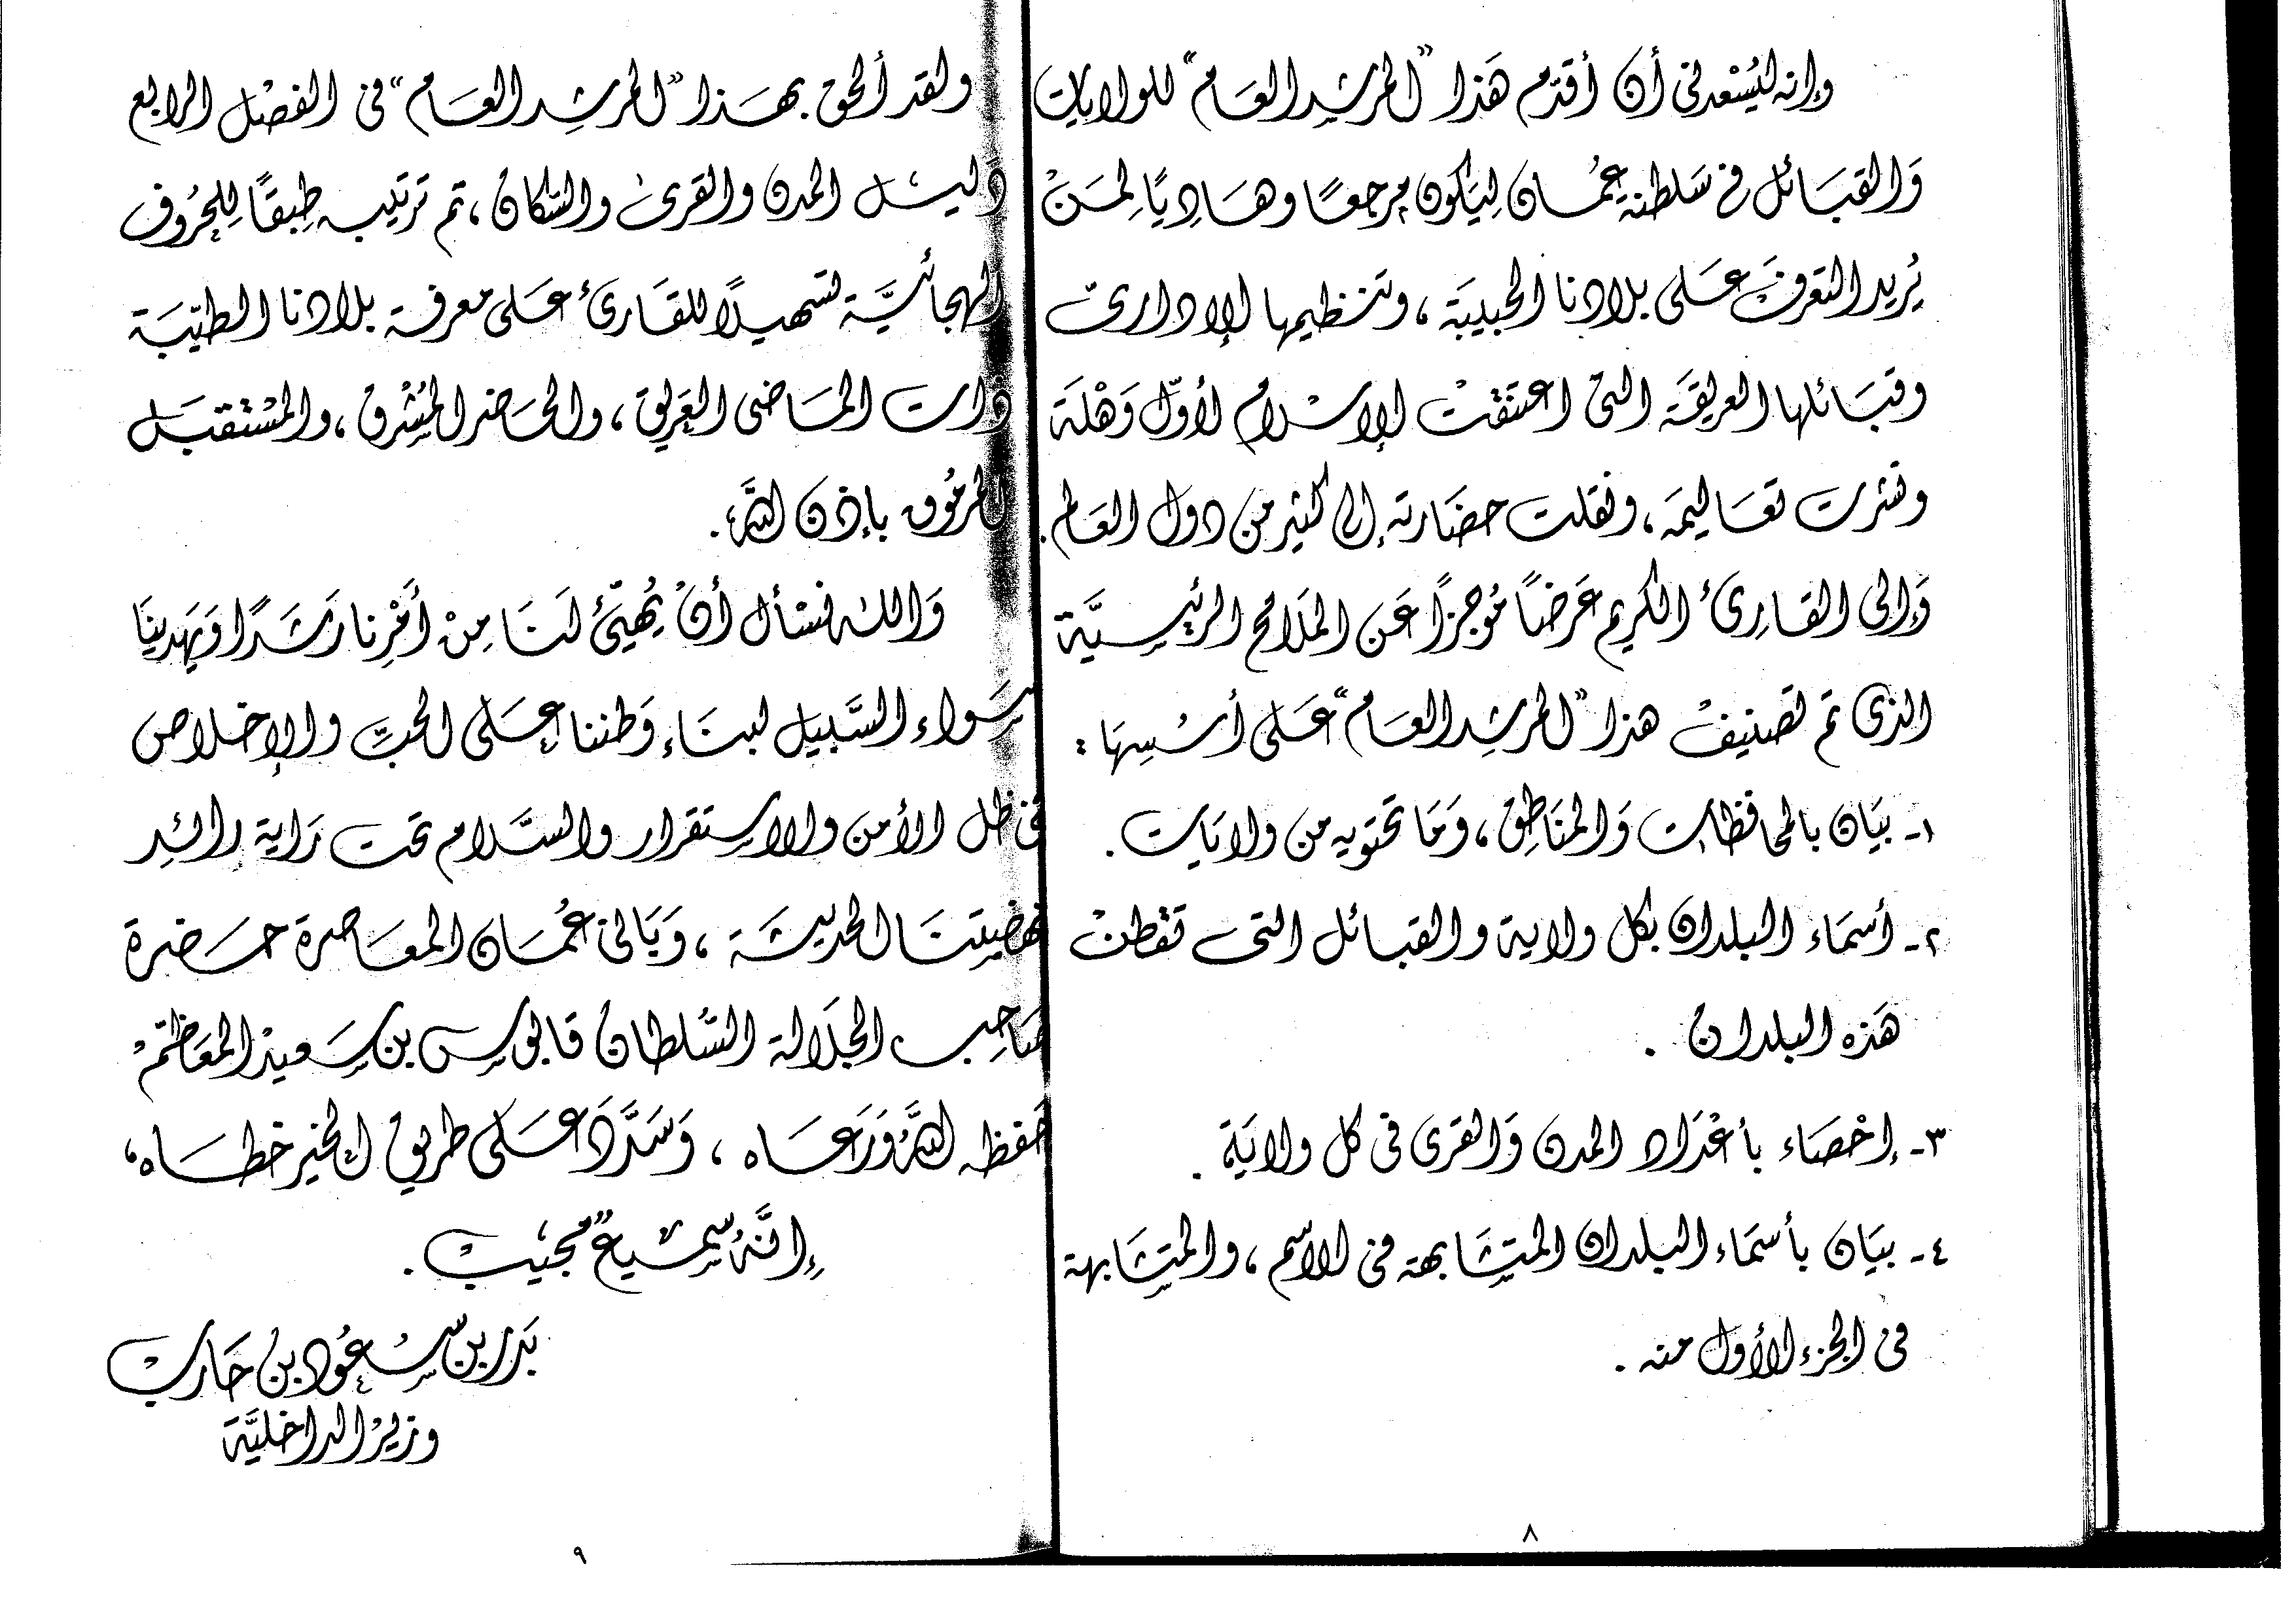 وإنه ليُسْعدني أن أقدم هَذا "المرشد العَام" للولايات
وَالقبَائل في سَلطنة عُمان لِيَكون مرجعًا وهَادِيًا لمَنْ
يُريد التعرفَ عَلى بلادنا الحبيبَة، وتنظيمها الإداري
وقبَائلها العريقَة التي اعتنقتْ الإسلام لأوّل وَهْلَة
ونشرت تعَاليمَه، ونقلت حضَارته إلى كثير من دول العَالم.
وَإلى القارِئ الكريم عَرضًا مُوجزًا عَن الملَامح الرئيسيَّة
الذي تم تصنيفْ هذا "المرشِد العَام" عَلى أسْسِهَا:
١- بيَان بالمحافظات وَالمنَاطِق، وَمَا تحتويه من ولايَات.
٢- أسمَاء البلدان بكل ولاية والقبائل التي تقطنْ
هَذه البلدان.
٣- إحْصَاء بأعْدَاد المدن وَالقرى في كل ولايَة.
٤- بيَان بأسمَاء البلدان المتشَابهة في الاسم، والمتشَابهة
في الجزء الأول منه.
٨
ولقد ألحق بهَذا "المرشِد العَام" في الفصْل الرابع
دَليل المدن والقرى والسكان، تم ترتيبه طِبقًا لِلحُرُوف
الهجائيَّة تسهيلًا للقَارئ عَلى معرفة بلادنا الطيّبَة
ذات المَاضي العَرِيق، والحَاضر المُشْرق، والمسْتقبَل
المرمُوق بإذن اللَّه.
وَالله نسْأل أنْ يُهيّئ لنَا مِنْ أمْرِنا رَشَدًا وَيَهدينَا
سَواء السَّبيل لبنَاء وَطننا عَلى الحبّ والإخلاص
في ظل الأمن والاستقرار والسَّلام تحت رَاية رائدِ
نهضتِنَا الحديثَة، وَبَاني عُمَان المعَاصرة حَضرة
صَاحِب الجلَالة السُّلطان قابوس بن سَعيدْ المعَظّمْ
حَفظه اللَّهُ وَرَعَاه، وَسَدَّدَ عَلى طريق الخير خطاه،
إنَّهُ سَميعٌ مجيبْ.
بَدر بن سعُود بن حَاربْ
وزيرُ الداخليَّة
٩